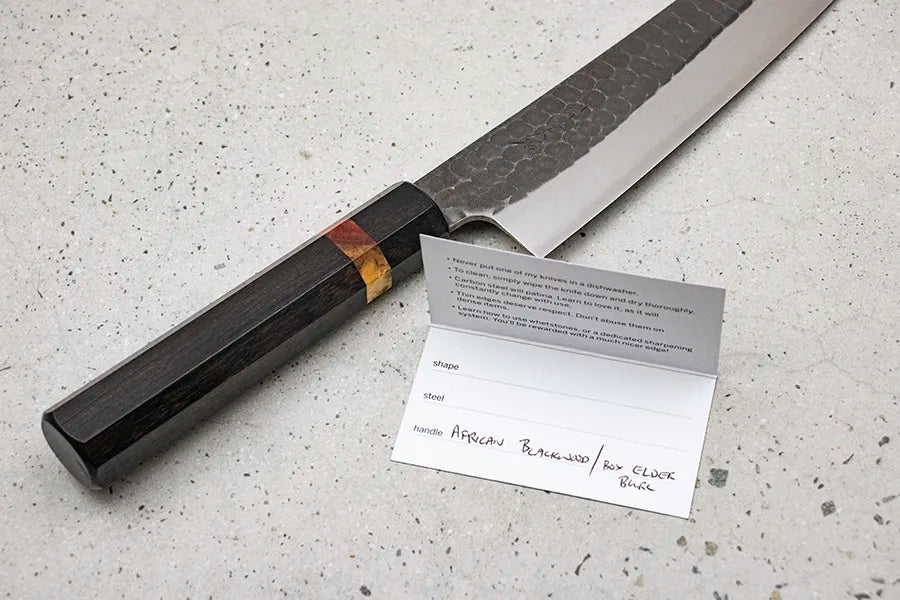 • Never put one of my knives in a dishwasher.
• To clean, simply wipe the knife down and dry thoroughly.
• Carbon steel will patina. Learn to love it, as it will
constantly change with use.
• Thin edges deserve respect. Don't abuse them on
dense items.
• Learn how to use whetstones, or a dedicated sharpening
system. You'll be rewarded with a much nicer edge!
shape
steel
handle AFRICAN BLACKWOOD/BOX ELDER
BURL